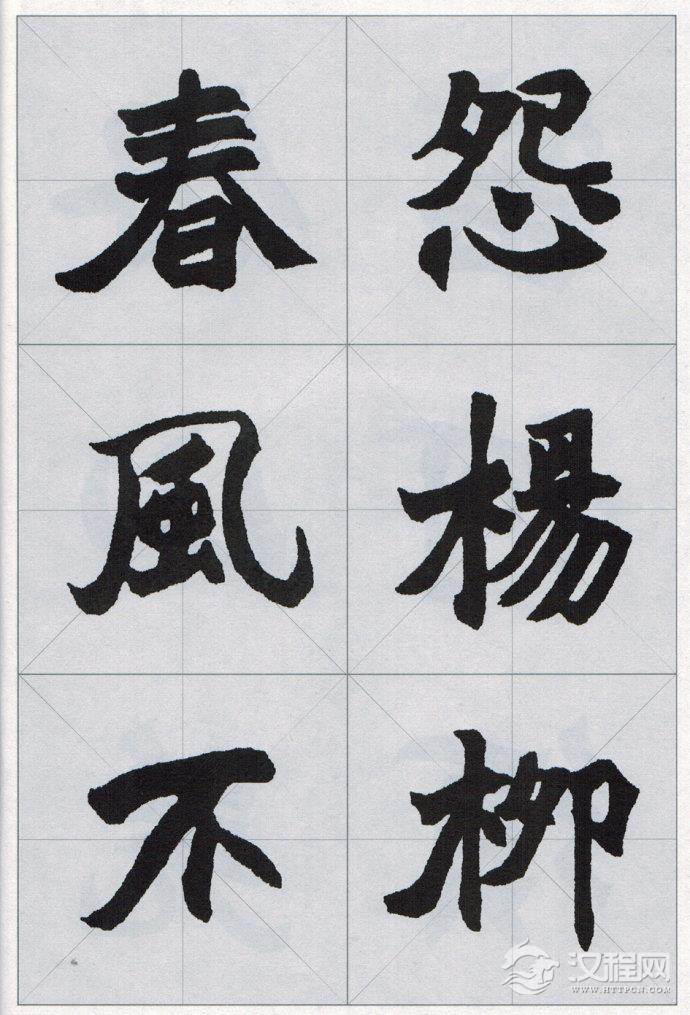 怨楊柳
春風不
汉程网
WWW.HTTPCN.COM